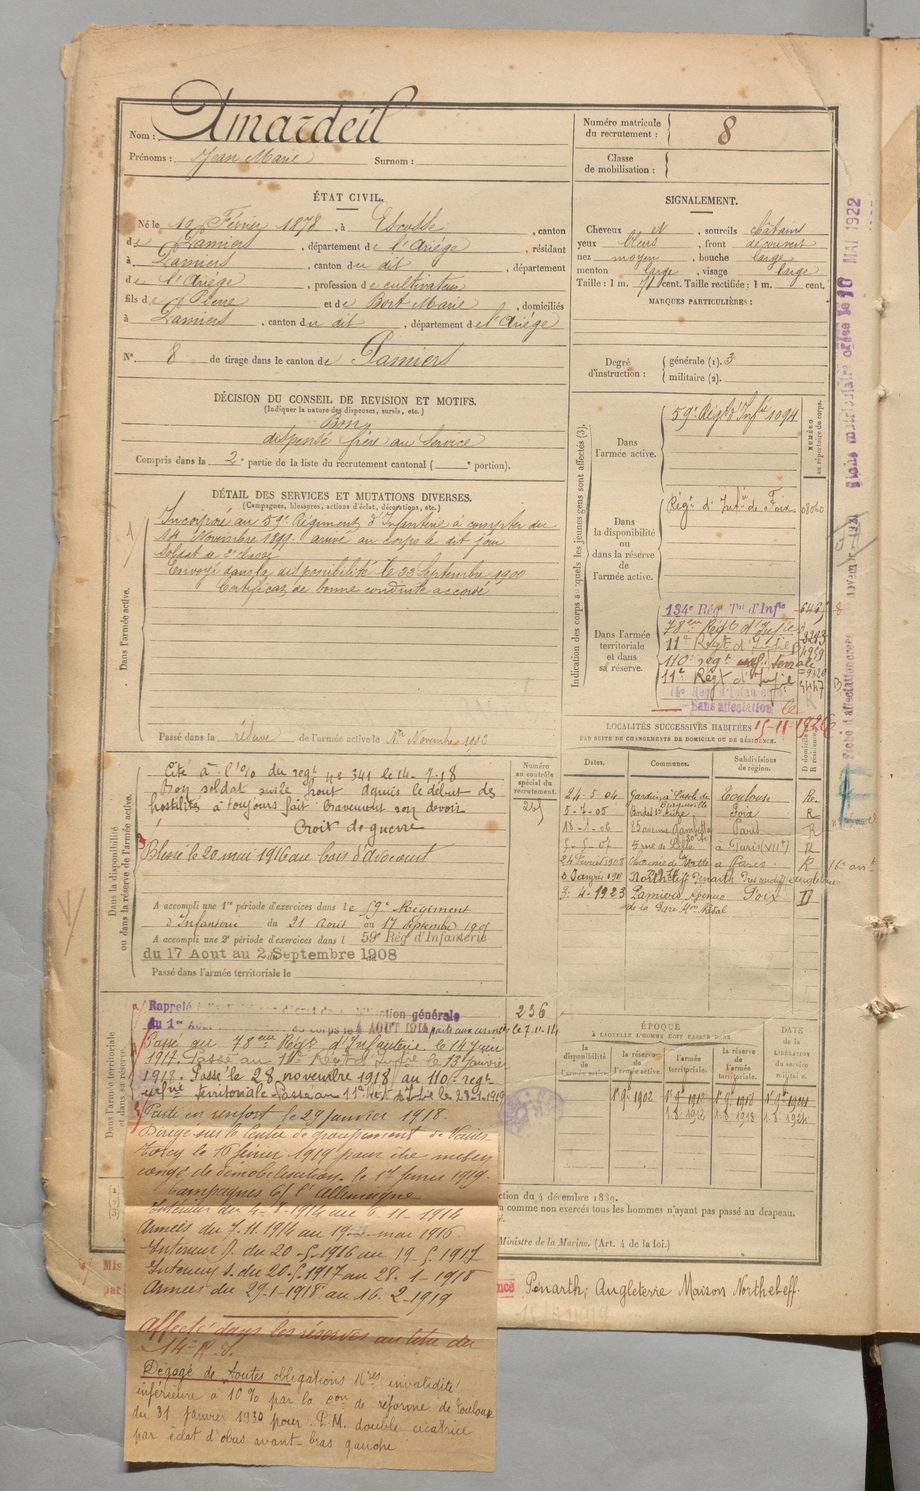 Nom : Amardeil
Prénoms : Jean Marie Surnom :
Numéro matricule du recrutement : 8
Classe de mobilisation :
ÉTAT CIVIL.
Né le 19 Février 1878, à Escosse, canton
de Pamiers, département de l'Ariége, résidant
à Pamiers, canton du dit, département
de l'Ariége, profession de cultivateur
fils de Pierre et de Bort Marie, domiciliés
à Pamiers, canton du dit, département de l'Ariége
N° 8 de tirage dans le canton de Pamiers
SIGNALEMENT.
Cheveux et, sourcils châtains
yeux bleus, front découvert
nez moyen, bouche large
menton large, visage large
Taille : 1 m. 71 cent. Taille rectifiée : 1 m. cent.
MARQUES PARTICULIÈRES :
Degré d'instruction : générale (1). 3
militaire (2).
DÉCISION DU CONSEIL DE REVISION ET MOTIFS.
(Indiquer la nature des dispenses, sursis, etc.)
Bon
dispensé frère au service
Compris dans la 2e partie de la liste du recrutement cantonal ( e portion).
DÉTAIL DES SERVICES ET MUTATIONS DIVERSES.
(Campagnes, blessures, actions d'éclat, décorations, etc.)
Dans l'armée active.
Incorporé au 59e Régiment d'Infanterie à compter du
14 Novembre 1899 arrivé au corps le dit jour
soldat de 2e classe
Envoyé dans la disponibilité le 22 Septembre 1900
Certificat de bonne conduite accordé
Passé dans la réserve de l'armée active le 1er Novembre 1902
Indication des corps auxquels les jeunes gens sont affectés (3).
NUMÉRO au répertoire du corps.
Dans l'armée active.
59e Régt d'Infie 1094
Dans la disponibilité ou dans la réserve de l'armée active.
Régt d'Infie de Foix
Dans l'armée territoriale et dans sa réserve.
134e Rég Tal d'Infie
78e Régt d'Infie
11e Régt d'Infie
110e régt infie terrale
11e Régt d'Infie
14e Rég d'Infanterie
Sans affectation le
15-11-1926
LOCALITÉS SUCCESSIVES HABITÉES
PAR SUITE DE CHANGEMENTS DE DOMICILE OU DE RÉSIDENCE.
Dates. Communes. Subdivisions de région. D domicile R résidence
24-5-04 Toulouse R
5-7-05 Foix R
18-1-06 25 avenue Gambetta Paris R
5-5-07 5 rue de Lille à Paris (VIIe) R
24 Février 1908 à Paris R
3 Janvier 1911 Northcliff Penarth Angleterre
3-4-1923 Pamiers Avenue de la Gare Foix D
Dans la disponibilité ou dans la réserve de l'armée active.
Numéro au contrôle spécial du recrutement.
Cité à l'o/ du régt n° 341 le 14-7-18
Bon soldat sur le front depuis le début des
hostilités à toujours fait bravement son devoir
Croix de guerre
Blessé le 20 mai 1916 au bois d'Avocourt
A accompli une 1re période d'exercices dans le 59e Régiment
d'Infanterie du 21 Août au 17 Septembre 1905
A accompli une 2e période d'exercices dans l 59e Rég d'Infanterie
du 17 Aout au 2 Septembre 1908
Passé dans l'armée territoriale le
Dans l'armée territoriale et dans sa réserve.
236
Rappelé mobilisation générale
du 1er Aout corps le 4 AOUT 1914 parti aux armées le 7.11.14
Passé au 78eme Régt d'Infanterie le 14 juin
1917. Passé au 11e Régt d'Infie le 13 janvier
1918. Passé le 28 novembre 1918 au 110e régt
infie territoriale. Passé au 11e Rt d'Inf le 28-1-1919
Parti en renfort le 29 janvier 1918.
ÉPOQUE
À LAQUELLE L'HOMME DOIT PASSER DANS
la disponibilité de l'armée active. la réserve de l'armée active. l'armée territoriale. la réserve de l'armée territoriale. DATE de la LIBÉRATION du service militaire.
Dirigé sur le Centre de groupement de Vaires
Torcy le 16 février 1919 pour être mis en
congé de démobilisation le 17 février 1919.
Campagnes C/ l'Allemagne
Intérieur du 4-8-1914 au 6-11-1914
Armées du 7.11.1914 au 19 mai 1916
Intérieur B. du 20-5-1916 au 19.5.1917
Intérieur S. du 20.5.1917 au 28-1-1918
Armées du 29-1-1918 au 16-2-1919
Affecté dans les réserves au titre du
14e R.I.
Dégagé de toutes obligations Mres invalidité
inférieure à 10% par la con de réforme de Toulouse
du 31 janvier 1930 pour : P.M. double cicatrice
par éclat d'obus avant-bras gauche
ction du 4 décembre 1889.
comme non exercés tous les hommes n'ayant pas passé au drapeau.
Ministre de la Marine. (Art. 4 de la loi.)
Penarth, Angleterre Maison Northcliff.
10 MAI 1922